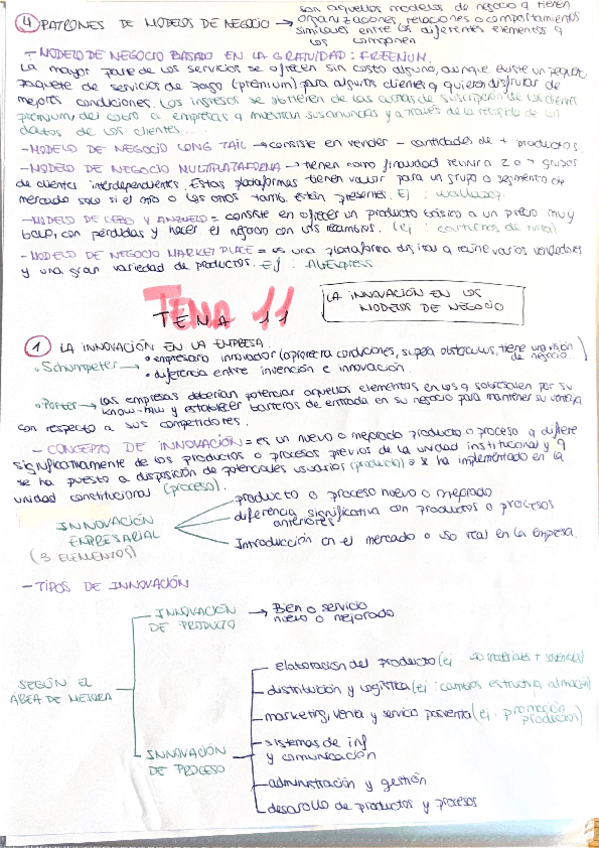 4 PATRONES DE MODELOS DE NEGOCIO → son aquellos modelos de negocio q tienen
organizaciones, relaciones o comportamientos
similares entre los diferentes elementos q
los componen
- MODELO DE NEGOCIO BASADO EN LA GRATUIDAD: FREEMIUM.
La mayor parte de los servicios se ofrecen sin costo alguno, aunque existe un pequeño
paquete de servicios de pago (premium) para algunos clientes q quieren disfrutar de
mejores condiciones. Los ingresos se obtienen de las cuotas de suscripción de los clientes
premium, del cobro a empresas q muestran sus anuncios y a través de la recogida de
datos de los clientes...
- MODELO DE NEGOCIO LONG TAIL → consiste en vender - cantidades de + productos.
- MODELO DE NEGOCIO MULTIPLATAFORMA → tienen como finalidad reunir a 2 o > grupos
de clientes interdependientes. Estas plataformas tienen valor para un grupo o segmento de
mercado solo si el otro o los otros tamb. están presentes. Ej: wallapop.
- MODELO DE CEBO Y ANZUELO = consiste en ofrecer un producto básico a un precio muy
bajo, con pérdidas y hacer el negocio con los recambios. (ej:
- MODELO DE NEGOCIO MARKET PLACE = es una plataforma digital q reúne varios vendedores
y una gran variedad de productos. Ej: AliExpress
TEMA 11
LA INNOVACIÓN EN LOS
MODELOS DE NEGOCIO
1 LA INNOVACIÓN EN LA EMPRESA.
• Schumpeter → • empresario innovador (aprovecha condiciones, supera obstáculos, tiene una visión
de negocio)
• diferencia entre invención e innovación.
• Porter → las empresas deberían potenciar aquellos elementos en los q sobresalen por su
know-how y establecer barreras de entrada en su negocio para mantener su ventaja
con respecto a sus competidores.
- CONCEPTO DE INNOVACIÓN = es un nuevo o mejorado producto o proceso q difiere
significativamente de los productos o procesos previos de la unidad institucional y q
se ha puesto a disposición de potenciales usuarios (producto) o se ha implementado en la
unidad constitucional (proceso).
INNOVACIÓN
EMPRESARIAL
(3 ELEMENTOS)
producto o proceso nuevo o mejorado
diferencia significativa con productos o procesos
anteriores
Introducción en el mercado o uso real en la empresa.
- TIPOS DE INNOVACIÓN
SEGÚN EL
ÁREA DE MEJORA
INNOVACIÓN
DE PRODUCTO
→ Bien o servicio
nuevo o mejorado
INNOVACIÓN
DE PROCESO
elaboración del producto (ej: uso materiales + sostenibles)
distribución y logística (ej: cambios estructura almacén)
marketing, venta y servicio posventa (ej: promoción
productos)
sistemas de inf
y comunicación
administración y gestión
desarollo de productos y procesos